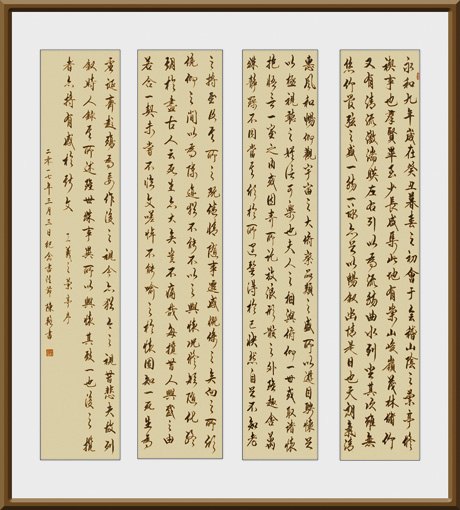 永和九年歲在癸丑暮春之初會于會稽山陰之蘭亭修
禊事也群賢畢至少長咸集此地有崇山峻嶺茂林修竹
又有清流激湍映帶左右引以為流觴曲水列坐其次雖無
絲竹管弦之盛一觴一詠亦足以暢敘幽情是日也天朗氣清
惠風和暢仰觀宇宙之大俯察品類之盛所以遊目騁懷足
以極視聽之娛信可樂也夫人之相與俯仰一世或取諸懷
抱悟言一室之內或因寄所託放浪形骸之外雖趣舍萬
殊靜躁不同當其欣於所遇暫得於己快然自足不知老
之將至及其所之既倦情隨事遷感慨係之矣向之所欣
俛仰之間以為陳跡猶不能不以之興懷況修短隨化終
期於盡古人云死生亦大矣豈不痛哉每攬昔人興感之由
若合一契未嘗不臨文嗟悼不能喻之於懷固知一死生為
虛誕齊彭殤為妄作後之視今亦猶今之視昔悲夫故列
敘時人錄其所述雖世殊事異所以興懷其致一也後之攬
者亦將有感於斯文 王羲之蘭亭序
二〇一七年三月三日紀念書法節 陳書